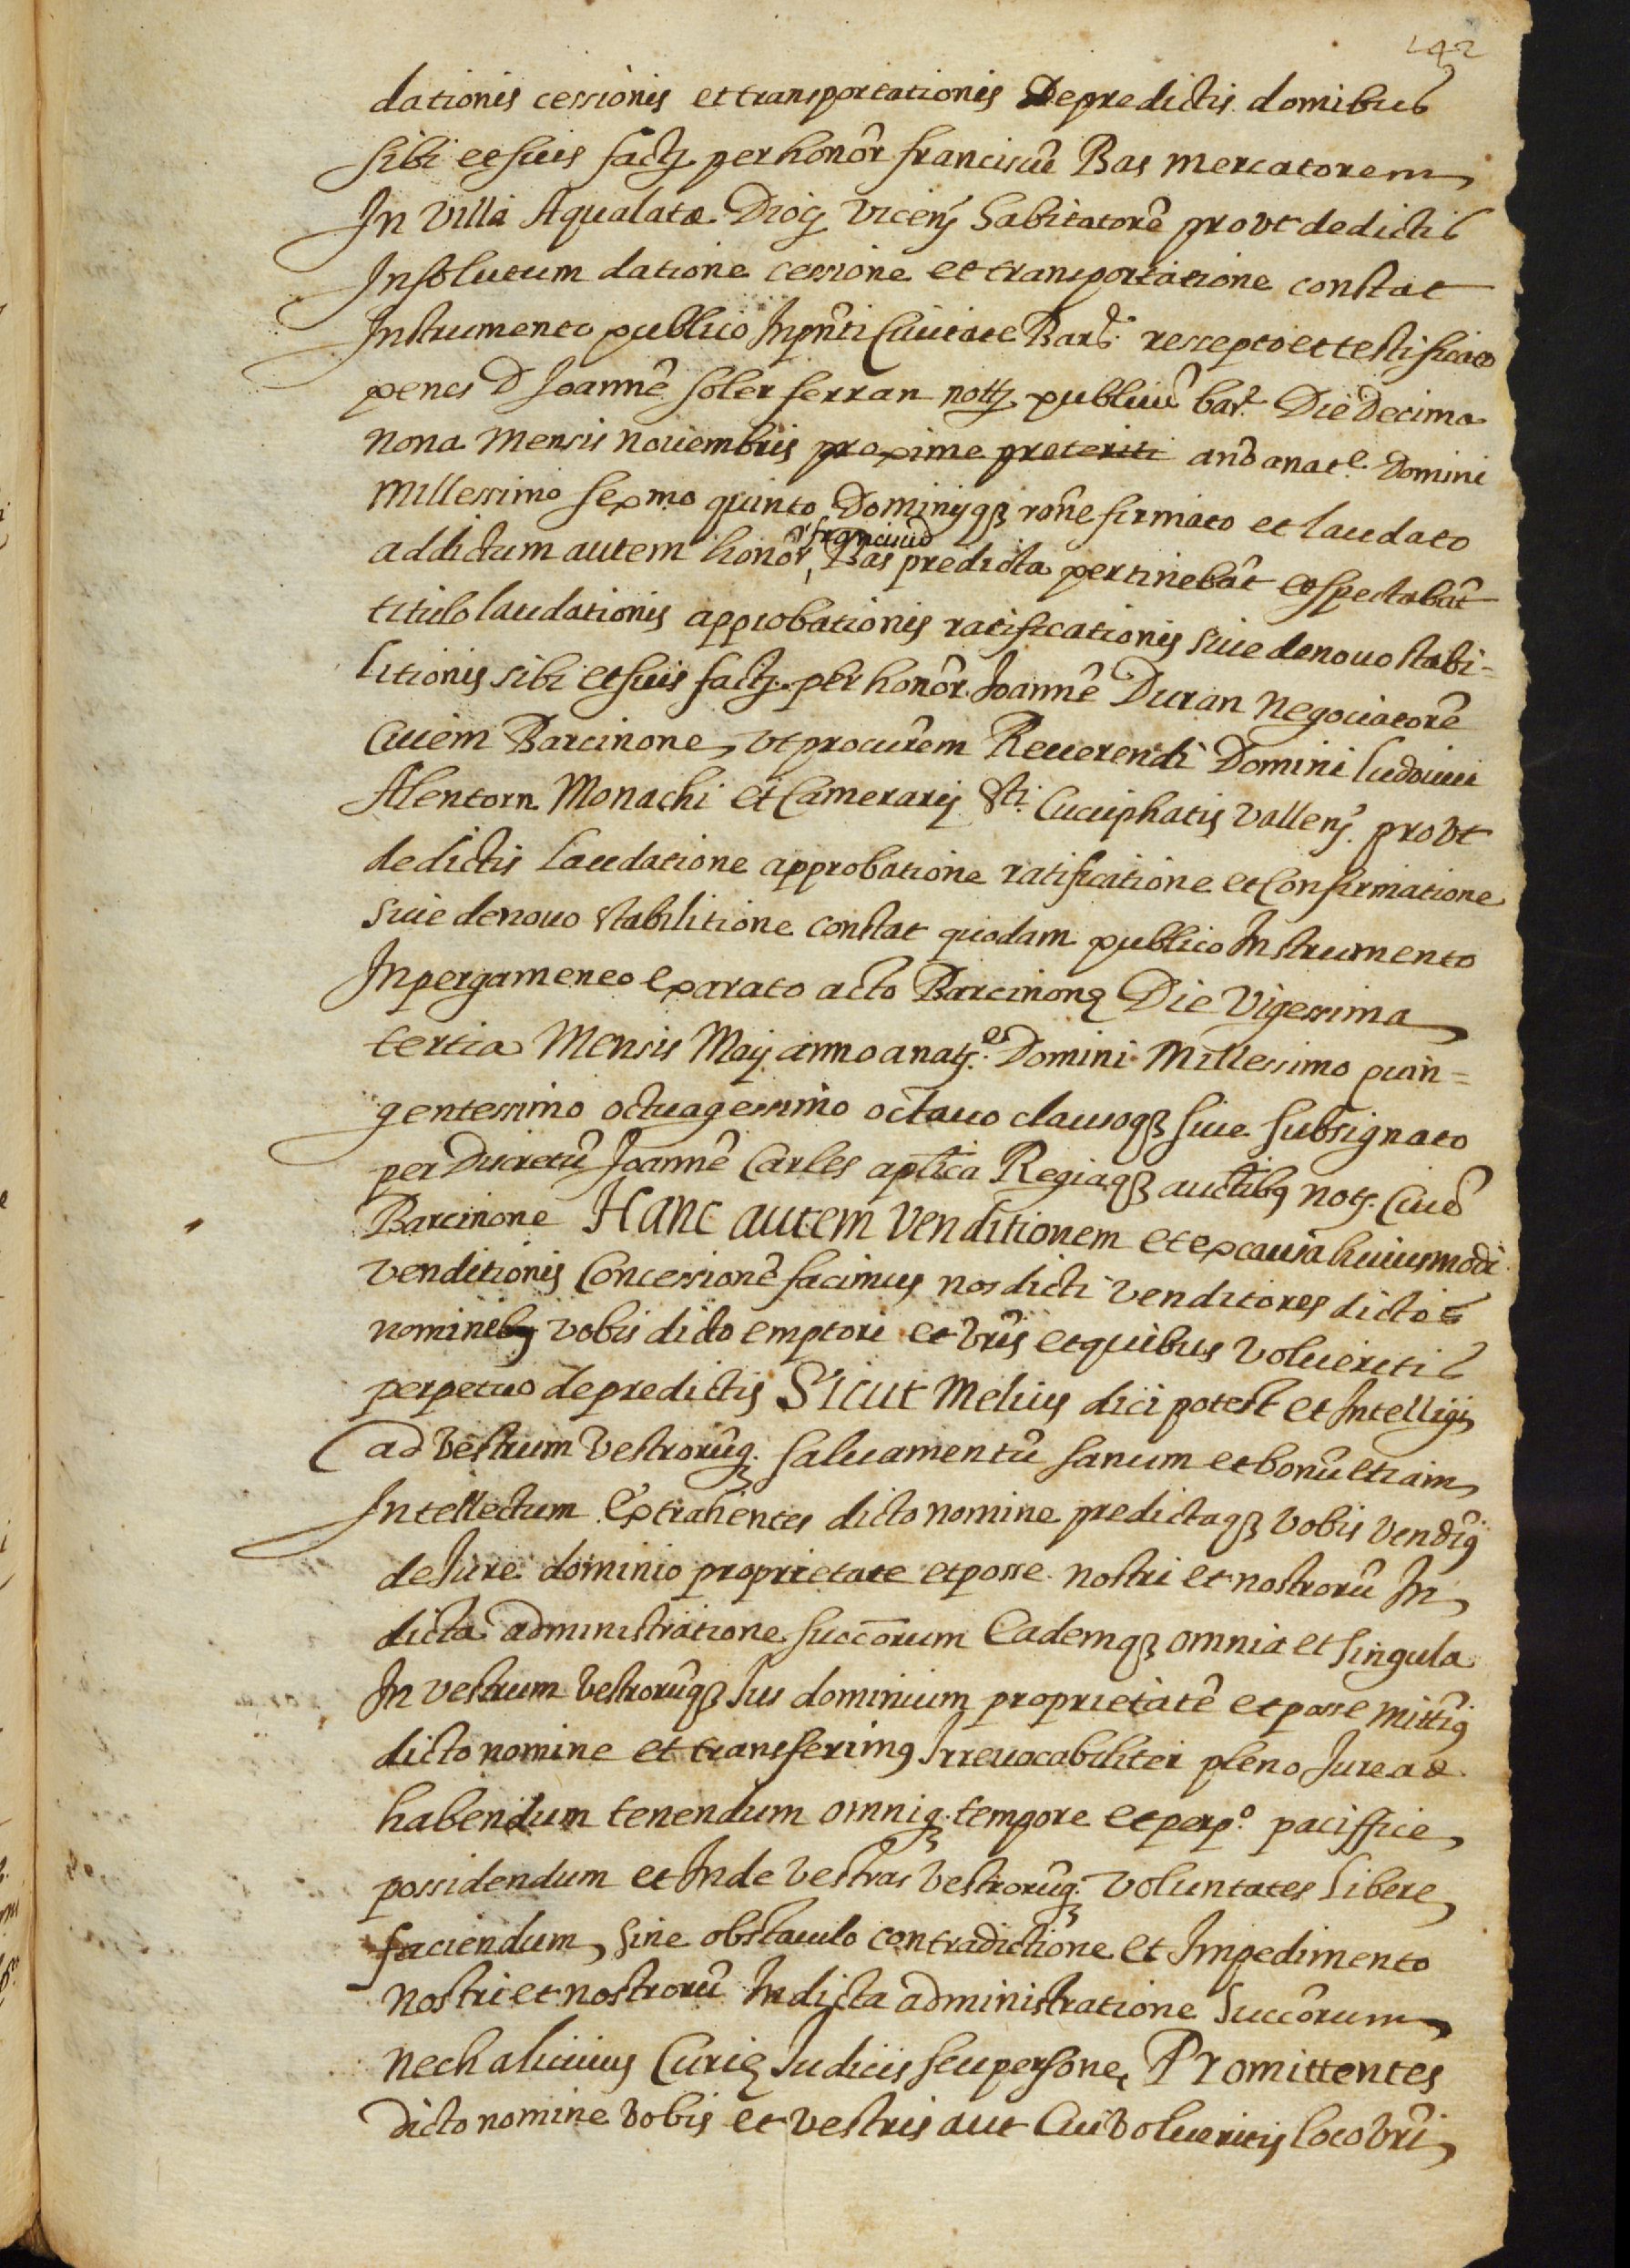 142
dationis cessionis et transportationis De predictis domibus
sibi et suis factę per honōr franciscū Bas mercatorem
In villa Aqualatæ Diocs̨ Vicenş habitatorē prout de dictis
Insolutum datione cessione et transportatione constat
Instrumento publico In pn̄ti Ciuitate Barſ. resceptoet testificato
penes D Joannē soler ferran nottş publicū barſ. Die Decima
nona Mensis nouembris proxime preteriti anō a natᵉ. Domini
Millessimo sexmo quinto Dominijqȝ rōne firmato et laudato
ad dictum autem honōr, franciscū Bas predicta pertinebāt et spectabāt
titulo laudationis approbationis ratificationis siue de nouo stabi=
litionis sibi et suis factę per honōr. Joannē Duran Negociatorē
Ciuem Barcinone, vt procur̄em Reuerendi Domini ludouici
Alentorn Monachi et Camerarij Sti. Cucuphatis Vallenş. prout
de dictis laudatione approbatione ratificatione et Confirmatione
siue de nouo stabilitione constat quodam publico Instrumento
In pergameneo exarato acto Barcinonę Die Vigessima
tertia Mensis Maij anno a natş.ᵉ Domini Millessimo quin=
gentessimo octuagessimo octauo clausoqȝ siue subsignato
per Discretū Joannē Carles ap̄lica Regiaqȝ auctibȝ nots. Ciuē
Barcinone HANC autem Venditionem et ex causa huiusmodi
venditionis Concessionē facimus nos dicti Venditores dictis
nominibȝ vobis dicto emptori et vr̄is et quibus volueritis
perpetuo de predictis SICUT Melius dici potest et Intelligi
ad vestrum Vestrorūqȝ. saluamentū sanum et bonū etiam
Intellectum Extrahentes dicto nomine predictaqȝ vobis vendim̄9
de Jure dominio proprietate et posse nostri et nostrorū In
dicta administratione succ̄orum Eademqȝ omnia et singula
In vestrum vestrorūqȝ Jus dominium proprietatē et posse mittim̄9
dicto nomine et transferim9 Irreuocabiliter pleno Jure ad
habendum tenendum omniqȝ. tempore et perp.º paciffice
possidendum et Inde Vestras Vestrorūqȝ. voluntates libere
faciendum, sine obstaculo contradictione et Impedimento
nostri et nostrorū In dicta administratione Succ̄orum
nech alicuius Curię Judicis seu persone, PROmittentes
dicto nomine vobis et vestris aut Cui volueritis loco vr̄i